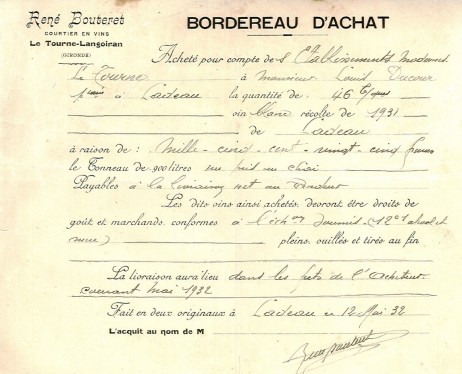 René Bouteret
COURTIER EN VINS
Le Tourne-Langoiran
(GIRONDE)
BORDEREAU D'ACHAT
Acheté pour compte de s Etablissements
Le Tourne à Monsieur Louis
à Cadeau la quantité de 46
vin blanc récolte de 1931
de Cadeau
à raison de : Mille cinq cent vingt cinq francs
le Tonneau de 900 litres nu pris en chai
Payables à la livraison net au vendeur
Les dits vins ainsi achetés, devront être droits de
goût et marchands, conformes à l'échon (12° alcool et
pleins, ouillés et tirés au fin
La livraison aura lieu dans les futs de l'acheteur
courant mai 1932
Fait en deux originaux à Cadeau le 12 Mai 32
L'acquit au nom de M